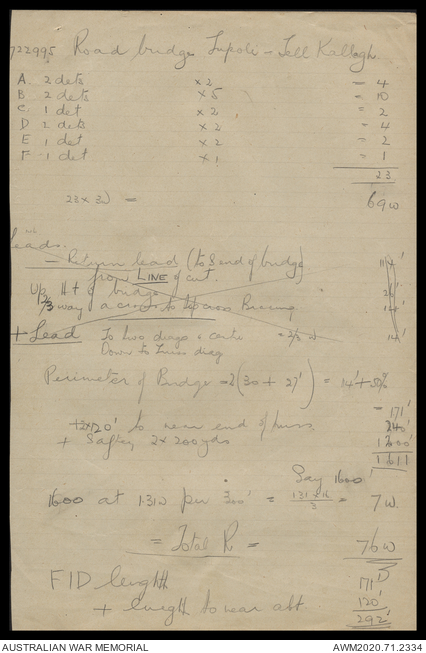 722995 Road bridge Tripoli - Tell Kallagh.
A. 2 dets x 2 = 4
B 2 dets x 5 = 10
C 1 det x 2 = 2
D 2 dets x 2 = 4
E 1 det x 2 = 2
F 1 det x 1 = 1
23
23 x 3ω = 69ω
Leads.
- Return lead (to S end of bridge)
from LINE of cut.
Up Ht of bridge
2/3 way across to top cross Bracing
+ Lead To two diags + centre = 2/3 ω 14'
Down to lower diag
Perimeter of Bridge = 2(30 + 27') = 14' + 50%
= 171'
+2x120' to near end of 240'
+ Saftey 2 x 200 yds 1200'
1611
Say 1600'
1600 at 1.31ω per 300' = 1.31 x 16 / 3 = 7 ω.
= Total R = 76 ω
FID lenghth 171'
+ length to near abt. 120'
292'
AUSTRALIAN WAR MEMORIAL
AWM2020.71.2334